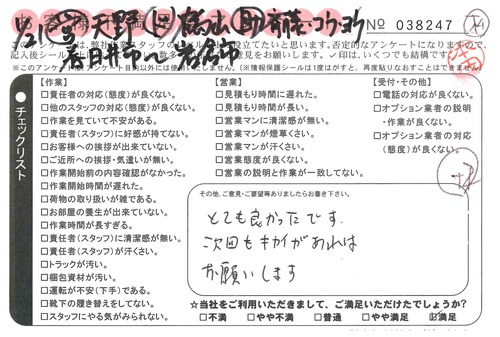 天野
No 038247
春日井市
このアンケートは
否定的なアンケートになりますので、
記入後シール
お願いします。✓印は、いくつでも結構です。
チェックリスト
【作業】
□責任者の対応(態度)が良くない。
□他のスタッフの対応(態度)が良くない。
□作業を見ていて不安がある。
□責任者(スタッフ)に好感が持てない。
□お客様への挨拶が出来ていない。
□ご近所への挨拶・気遣いが無い。
□作業開始前の内容確認がなかった。
□作業開始時間が遅れた。
□荷物の取り扱いが雑である。
□お部屋の養生が出来ていない。
□作業時間が長すぎる。
□責任者(スタッフ)に清潔感が無い。
□責任者(スタッフ)が汗くさい。
□トラックが汚い。
□梱包資材が汚い。
□運転が不安(下手)である。
□靴下の履き替えをしてない。
□スタッフにやる気がみられない。
【営業】
□見積もり時間に遅れた。
□見積もり時間が長い。
□営業マンに清潔感が無い。
□営業マンが煙草くさい。
□営業マンが汗くさい。
□営業態度が良くない。
□営業の説明と作業が一致してない。
【受付・その他】
□電話の対応が良くない。
□オプション業者の説明
・作業が良くない。
□オプション業者の対応
(態度)が良くない。
その他、ご意見・ご要望等ありましたらお書き下さい。
とても良かったです.
次回もキカイがあれば
お願いします
☆当社をご利用いただきまして、ご満足いただけたでしょうか?
□不満 □やや不満 □普通 □やや満足 ☑満足